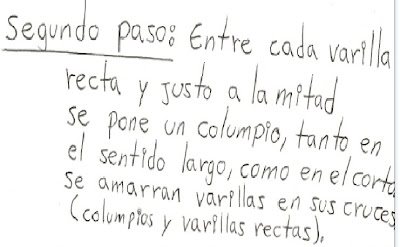 Segundo paso: Entre cada varilla
recta y justo a la mitad
se pone un columpio, tanto en
el sentido largo, como en el corto
se amarran varillas en sus cruces
(columpios y varillas rectas).